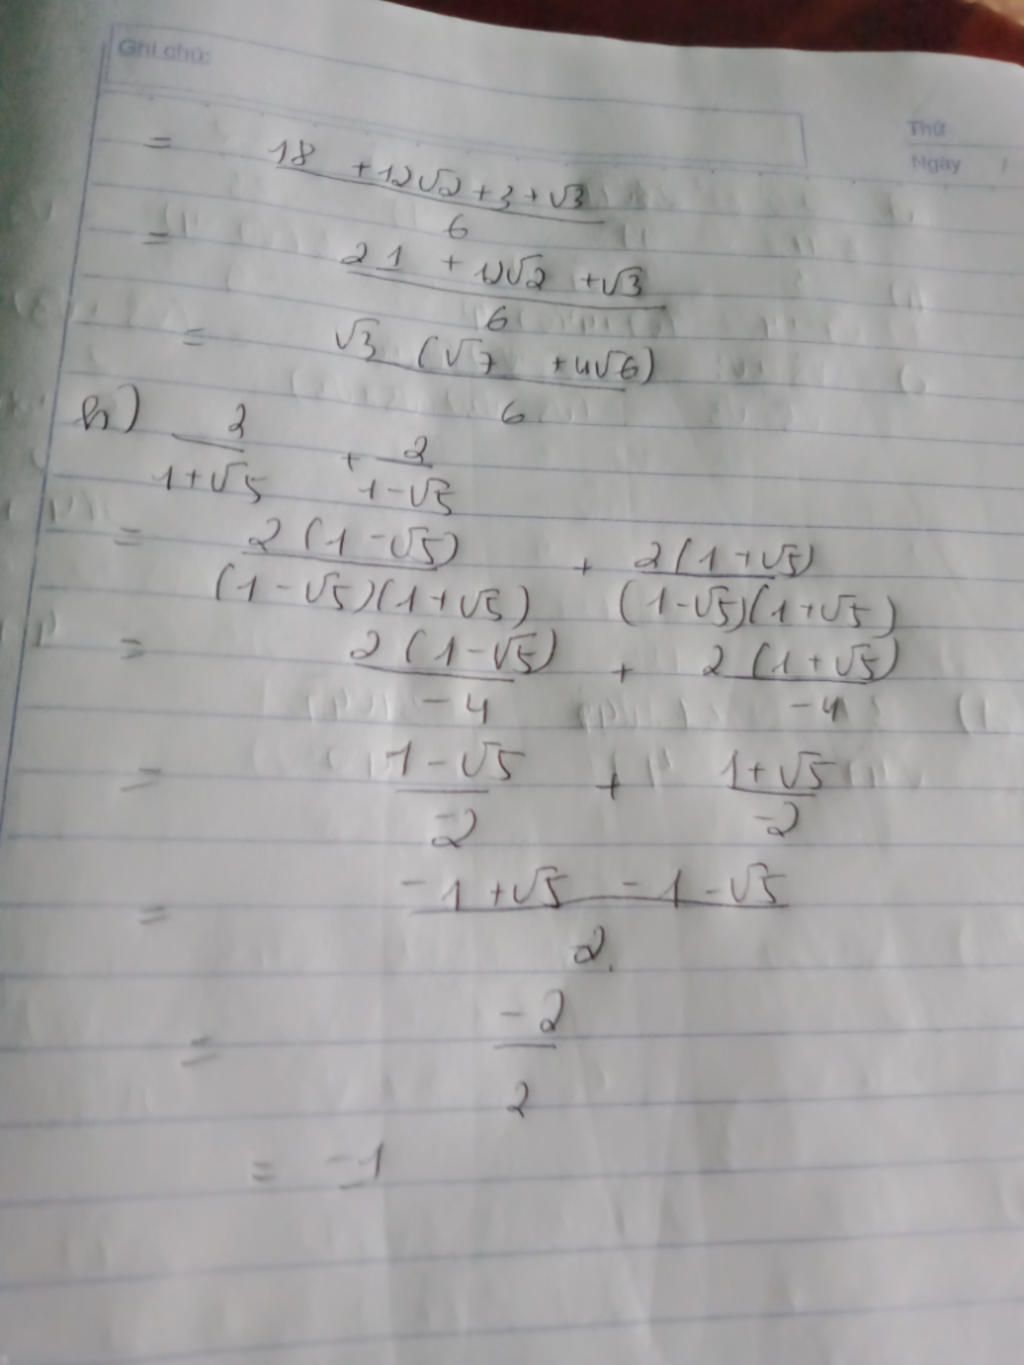 Ghi chú:
Thứ
Ngày /
= (18 + 12√2 + 3 + √3)/6
= (21 + 12√2 + √3)/6
= √3 (√7 + 4√6)/6
h) 2/(1+√5) + 2/(1-√5)
= 2(1-√5)/((1-√5)(1+√5)) + 2(1+√5)/((1-√5)(1+√5))
= 2(1-√5)/-4 + 2(1+√5)/-4
= (1-√5)/-2 + (1+√5)/-2
= (-1+√5 -1-√5)/2
= -2/2
= -1